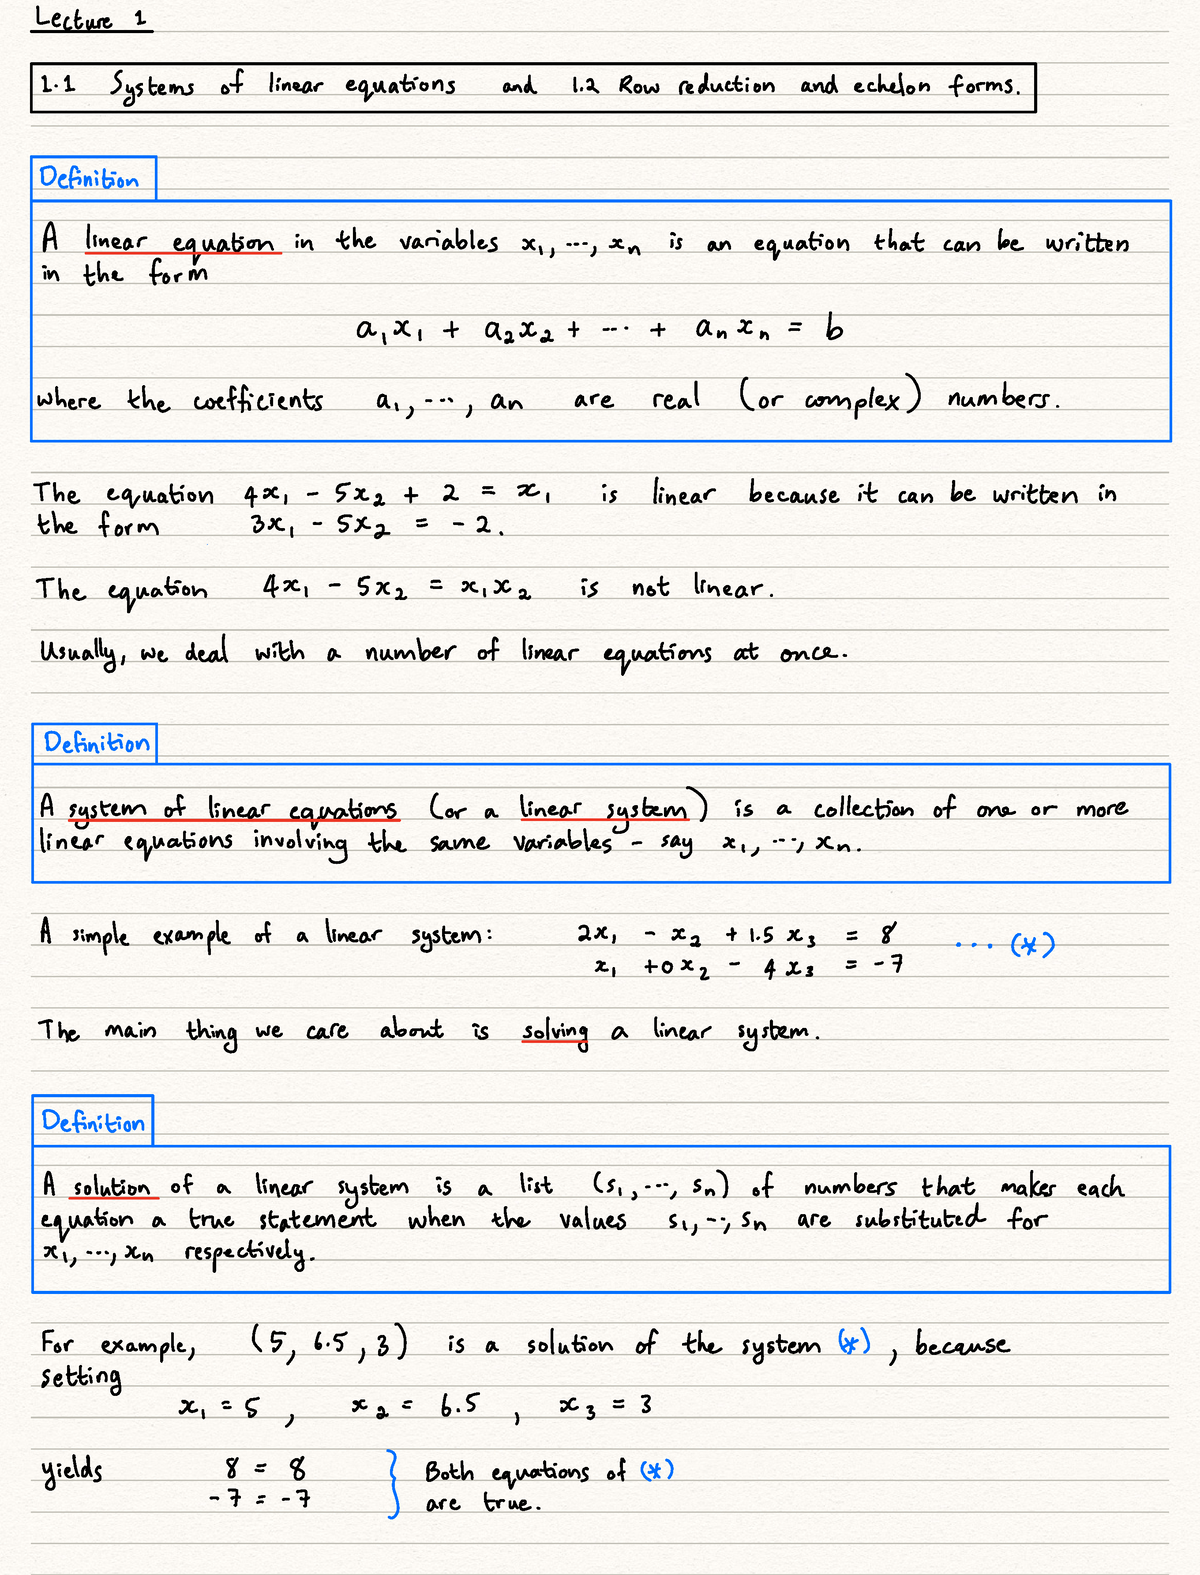 Lecture 1
1.1 Systems of linear equations and 1.2 Row reduction and echelon forms.
Definition
A linear equation in the variables x₁, ..., xₙ is an equation that can be written
in the form
a₁x₁ + a₂x₂ + ... + aₙxₙ = b
where the coefficients a₁, ..., aₙ are real (or complex) numbers.
The equation 4x₁ - 5x₂ + 2 = x₁ is linear because it can be written in
the form 3x₁ - 5x₂ = -2.
The equation 4x₁ - 5x₂ = x₁x₂ is not linear.
Usually, we deal with a number of linear equations at once.
Definition
A system of linear equations (or a linear system) is a collection of one or more
linear equations involving the same variables - say x₁, ..., xₙ.
A simple example of a linear system: 2x₁ - x₂ + 1.5x₃ = 8 ... (*)
x₁ + 0x₂ - 4x₃ = -7
The main thing we care about is solving a linear system.
Definition
A solution of a linear system is a list (s₁, ..., sₙ) of numbers that makes each
equation a true statement when the values s₁, ..., sₙ are substituted for
x₁, ..., xₙ respectively.
For example, (5, 6.5, 3) is a solution of the system (*), because
setting
x₁ = 5, x₂ = 6.5, x₃ = 3
yields 8 = 8 } Both equations of (*)
-7 = -7 are true.